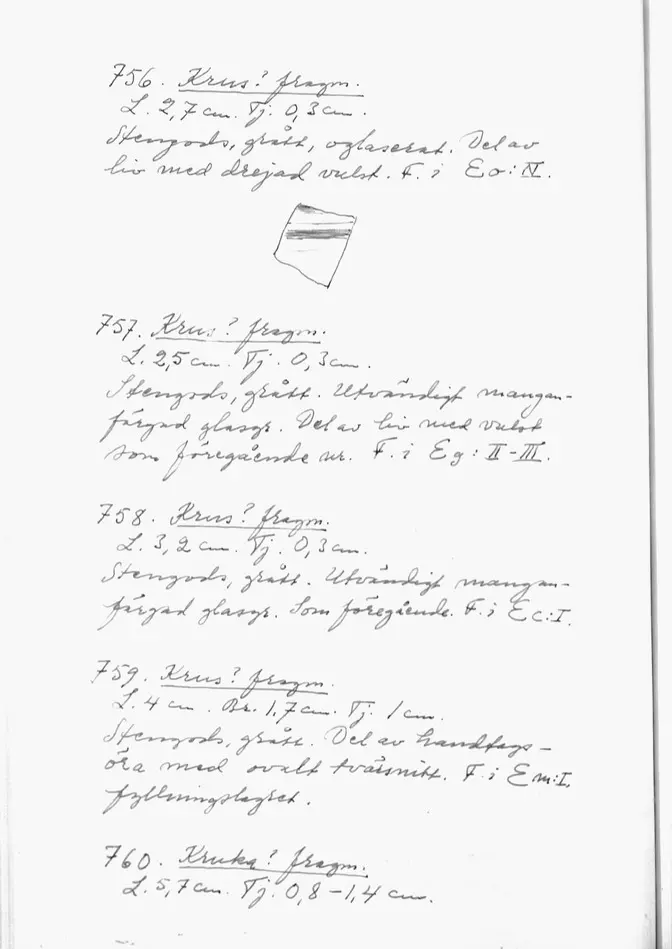 756. Krus? fragm.
L. 2,7 cm. Tj. 0,3 cm.
Stengods, grått, oglaserat. Del av
liv med drejad vulst. F. i Eo: IV.
757. Krus? fragm.
L. 2,5 cm. Tj. 0,3 cm.
Stengods, grått. Utvändigt mangan-
färgad glasyr. Del av liv med vulst
som föregående nr. F. i Eg: II-III.
758. Krus? fragm.
L. 3,2 cm. Tj. 0,3 cm.
Stengods, grått. Utvändigt mangan-
färgad glasyr. Som föregående. F. i Ec: I.
759. Krus? fragm.
L. 4 cm. Br. 1,7 cm. Tj. 1 cm.
Stengods, grått. Del av handtags-
öra med ovalt tvärsnitt. F. i Em: I,
fyllningslagret.
760. Kruka? fragm.
L. 5,7 cm. Tj. 0,8-1,4 cm.